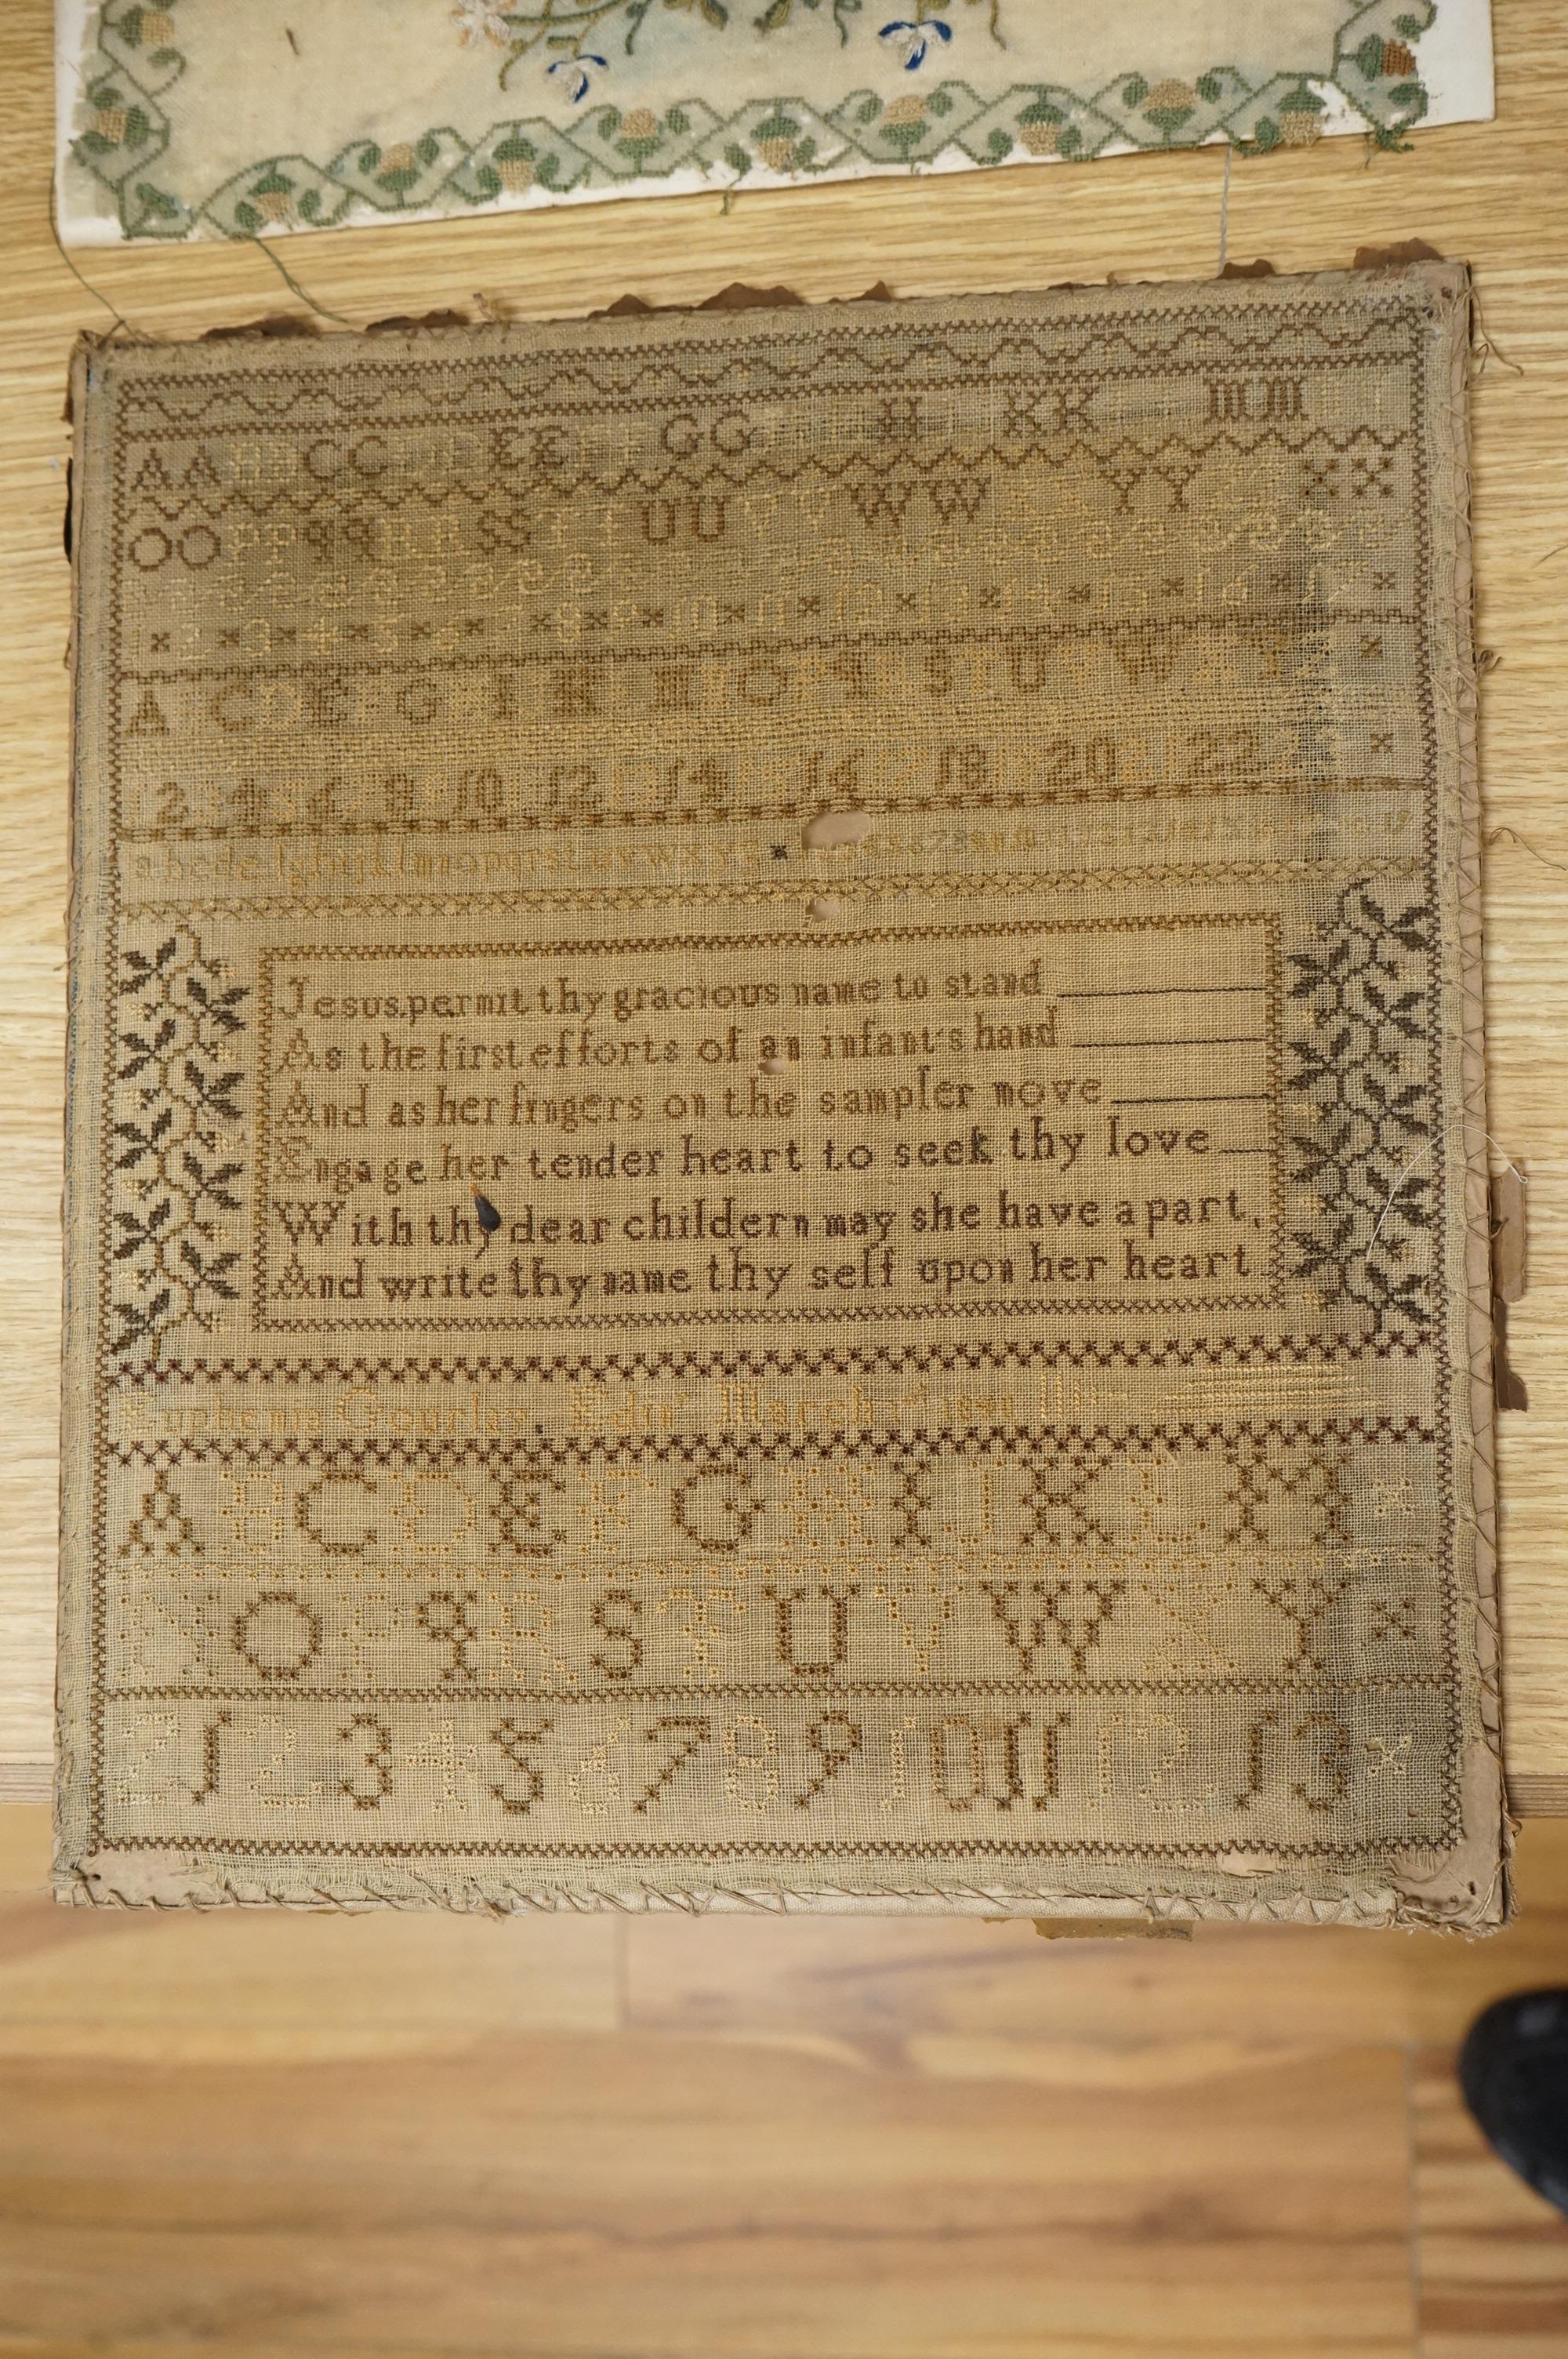 AA BB CC DD EE FF GG H KK MM
OO PP qq RR SS TT UU VV WW XX YY
1 2 3 4 5 6 7 8 9 10 11 12 13 14 15 16 17
A C D E F G I K M O P q S T U V W X Y Z
1 2 3 4 5 6 8 10 12 13 14 16 18 20 21 22
abcdefghijklmnopqrstuvwxyz
Jesus permit thy gracious name to stand
As the first efforts of an infant's hand
And as her fingers on the sampler move
Engage her tender heart to seek thy love
With thy dear childern may she have a part,
And write thy name thy self upon her heart
Euphemia Gourlay. Edinr March
A B C D E F G H I J K L M
N O P q R S T U V W X Y
Z 1 2 3 4 5 6 7 8 9 10 11 12 13